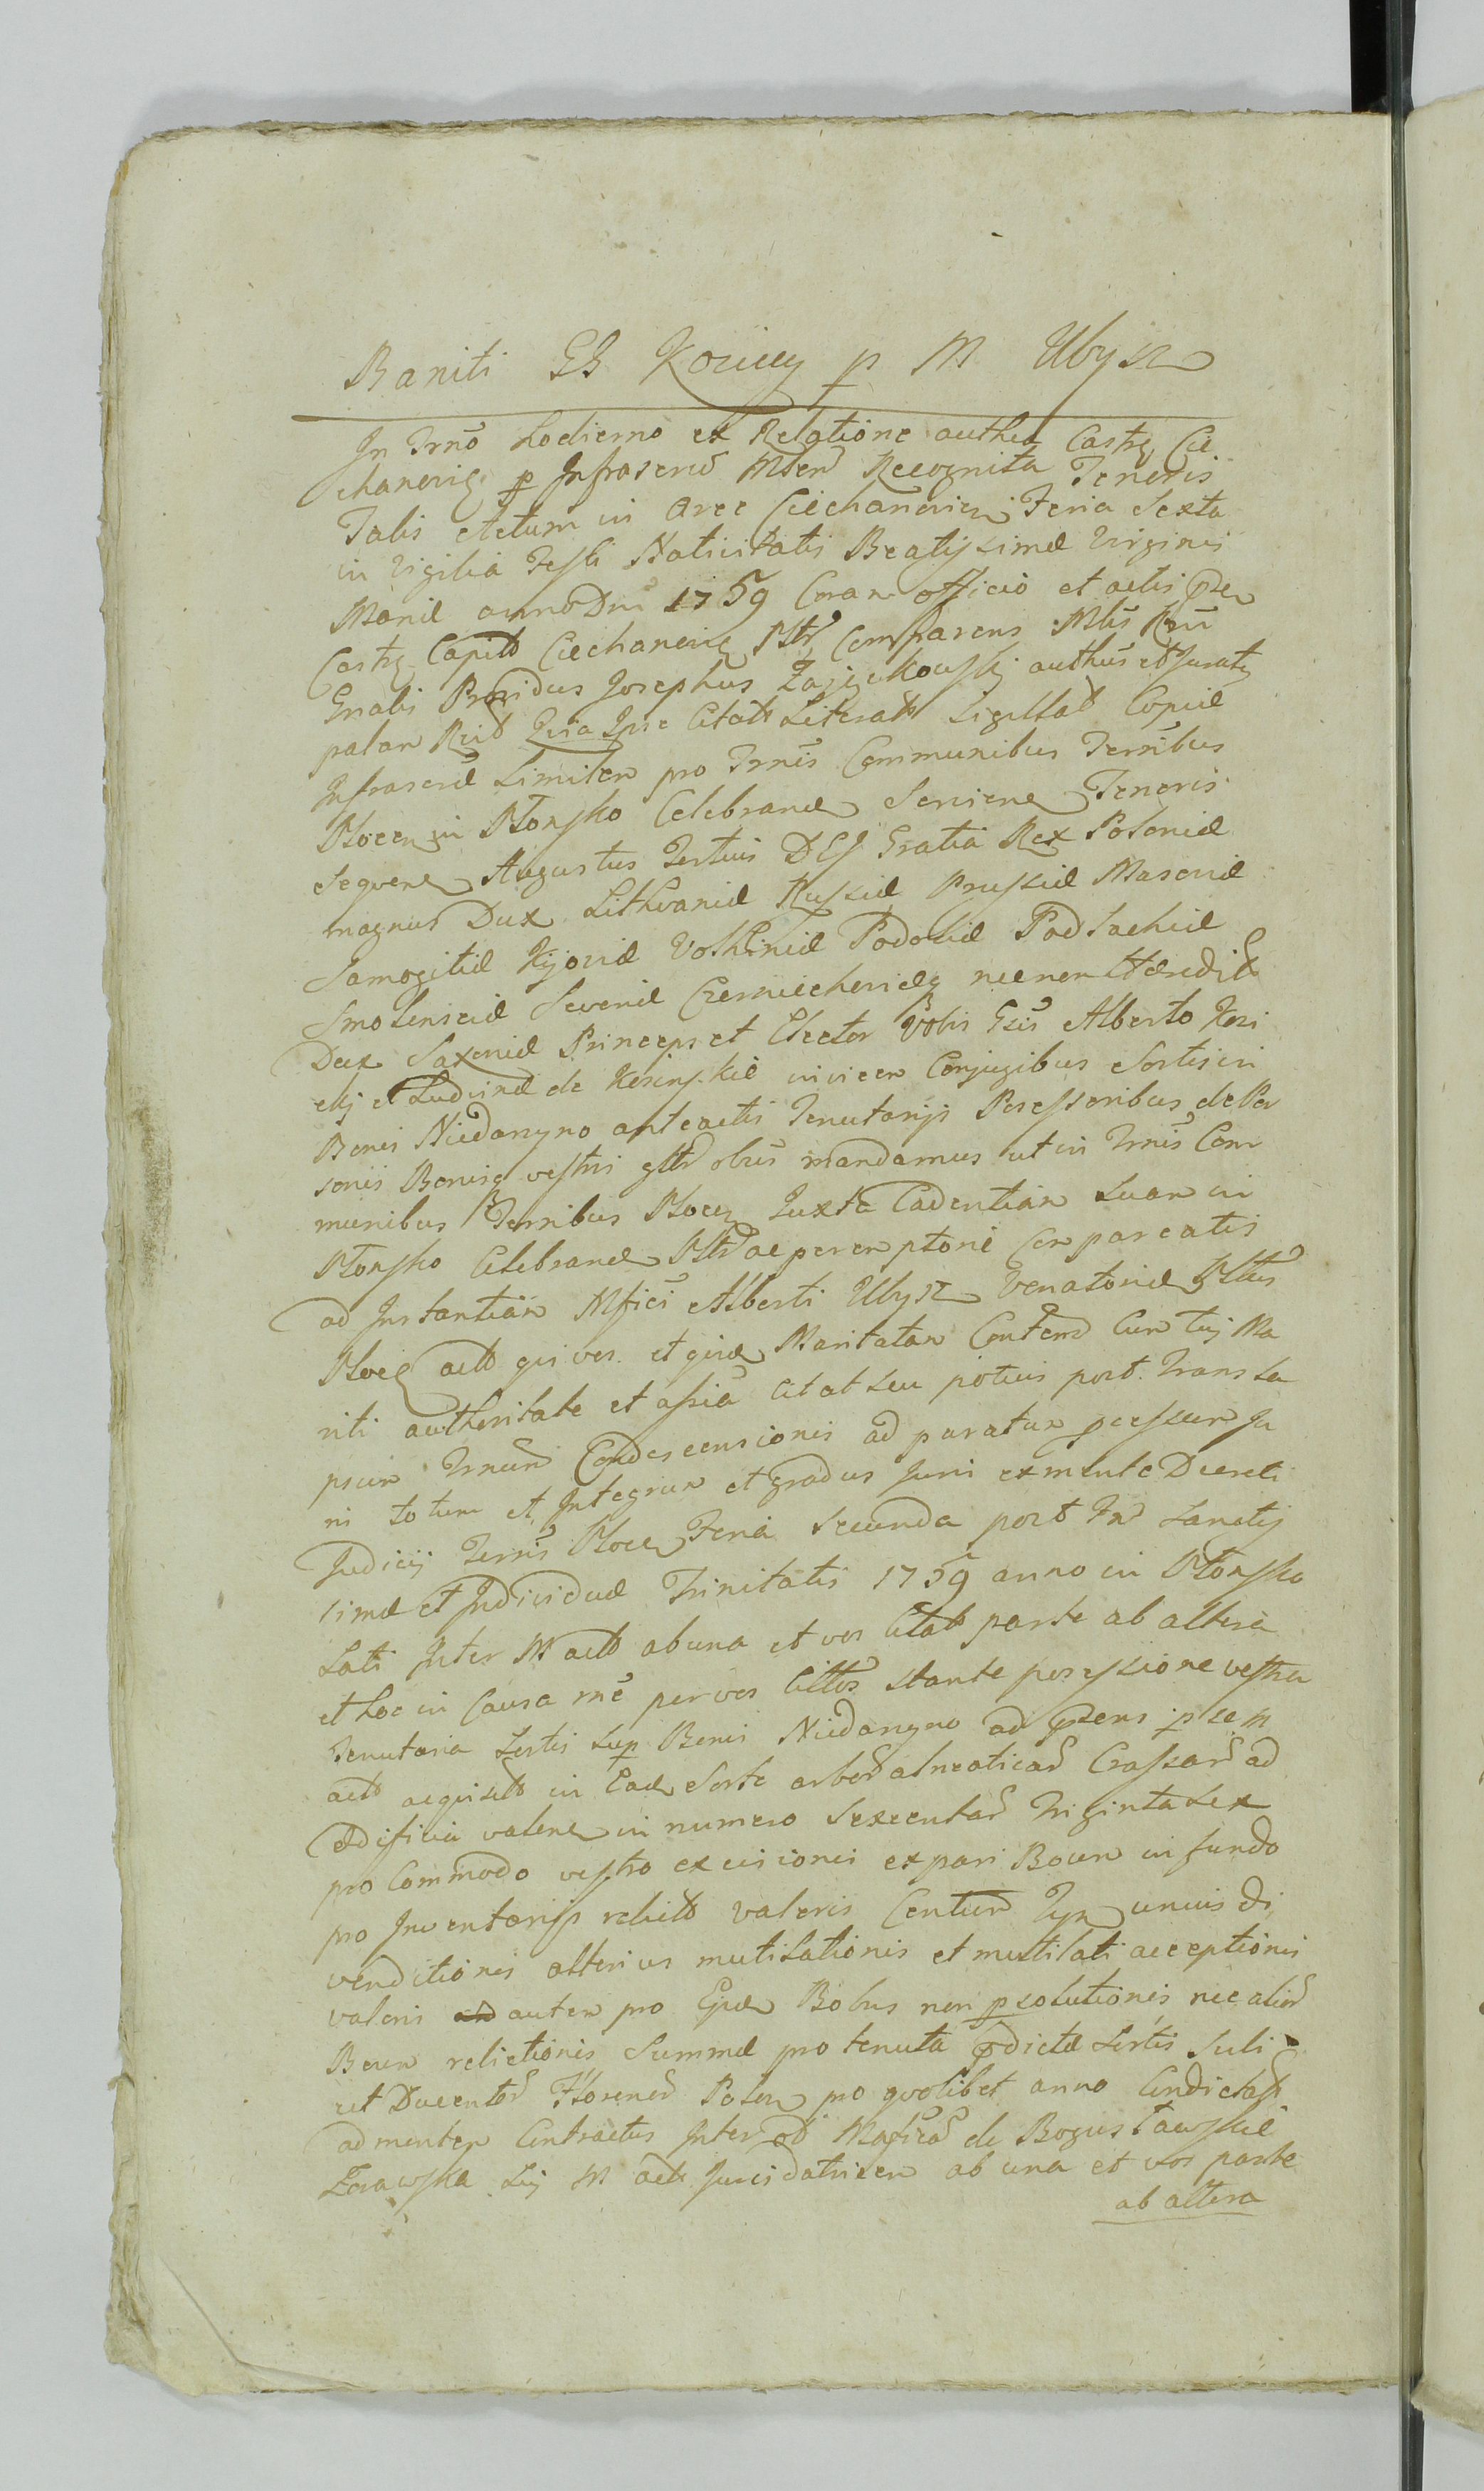 Baniti GB Kosiccy p M Ubysz
In Trno hodierno ex Relatione authca Castrq Cie
chanoviq p Infrascrm Mtem Recognita Tenoris
Talis Actum in Arce Ciechanovien Feria Sexta
in Vigilia Festi Nativitatis Beatissimæ Virginis
Mariæ anno Dni 1759 Coram officio et actis pñ
Castrq Capit Ciechanoviq Pltr Comparens Mtis Rni
Gnalis Providus Josephus authus et Juratq
palam Rcid Quia Ipse Citat Literat Sigillat Copiæ
Infrascræ Similem pro Trnis Communibus Terribus
Plocen in Płonsko Celebrand Servien Tenoris
Sequen Augustus Tertius DEI Gratia Rex Poloniæ
magnus Dux Lithvaniæ Russiæ Prussiæ Masoviæ
Samogitiæ Kijoviæ Volhiniæ Podoliæ Podlachiæ
Smolensciæ Severiæ Czerniechoviæq necnon Hæredit
Dux Saxoniæ Princeps et Elector Vobis Gsis Alberto Kosi
ckj et Ludvinæ de Kosinskie invicem Conjugibus Sortis in
Bonis Niedarzyno anteactis Tenutarijs Possessoribus de Per
sonis Bonisq vestris gltr obus mandamus ut in Trnis Com
munibus Terribus Plocen Juxta Cadentiam suam in
Płonsko Celebrand Pltr ac peremptorie Compareatis
ad Instantiam Mfici Alberti Ubysz Venatoridæ Pltus
Plocq act qui vos et qua Maritatam Content Cum tuj Ma
riti authoritate et assia Citat seu potius post Transla
psum Trnum Condescensionis ad paratum pcessum Ju
ris totum et Integrum et gradus Juris ex mente Decreti
Judicij Terris Plocen Feria Secunda post Fm Sanctis
simæ et Individuæ Trinitatis 1759 anno in Płonsko
Lati Inter M act ab una et vos Citat parte ab altera
et hoc in Causa rne per vos Cittos stante possessione vestra
Tenutaria Sortis sup Bonis Niedarzyno ad pñsens p se M
act acquisit in Ead Sorte arbor alneaticar Crassar ad
ædificia valen in numero Sexcentar Triginta Sex
pro Commodo vestro excisionis ex pari Boum in fundo
pro Inventarijs relict valoris Centum Tyn unius di
venditionis alterius mutilationis et mutilati acceptionis
valoris autem pro Eisd Bobus non psolutionis nec alior
Boum relictionis Summæ pro tenuta pdictæ Sortis Scli
cet Ducentor Florenor Polon pro quolibet anno Condictar
ad mentem Contractus Inter od Mgficam de Bogusławskie
Zorawska Suj M act Juridatricem ab una et vos parte
ab altera